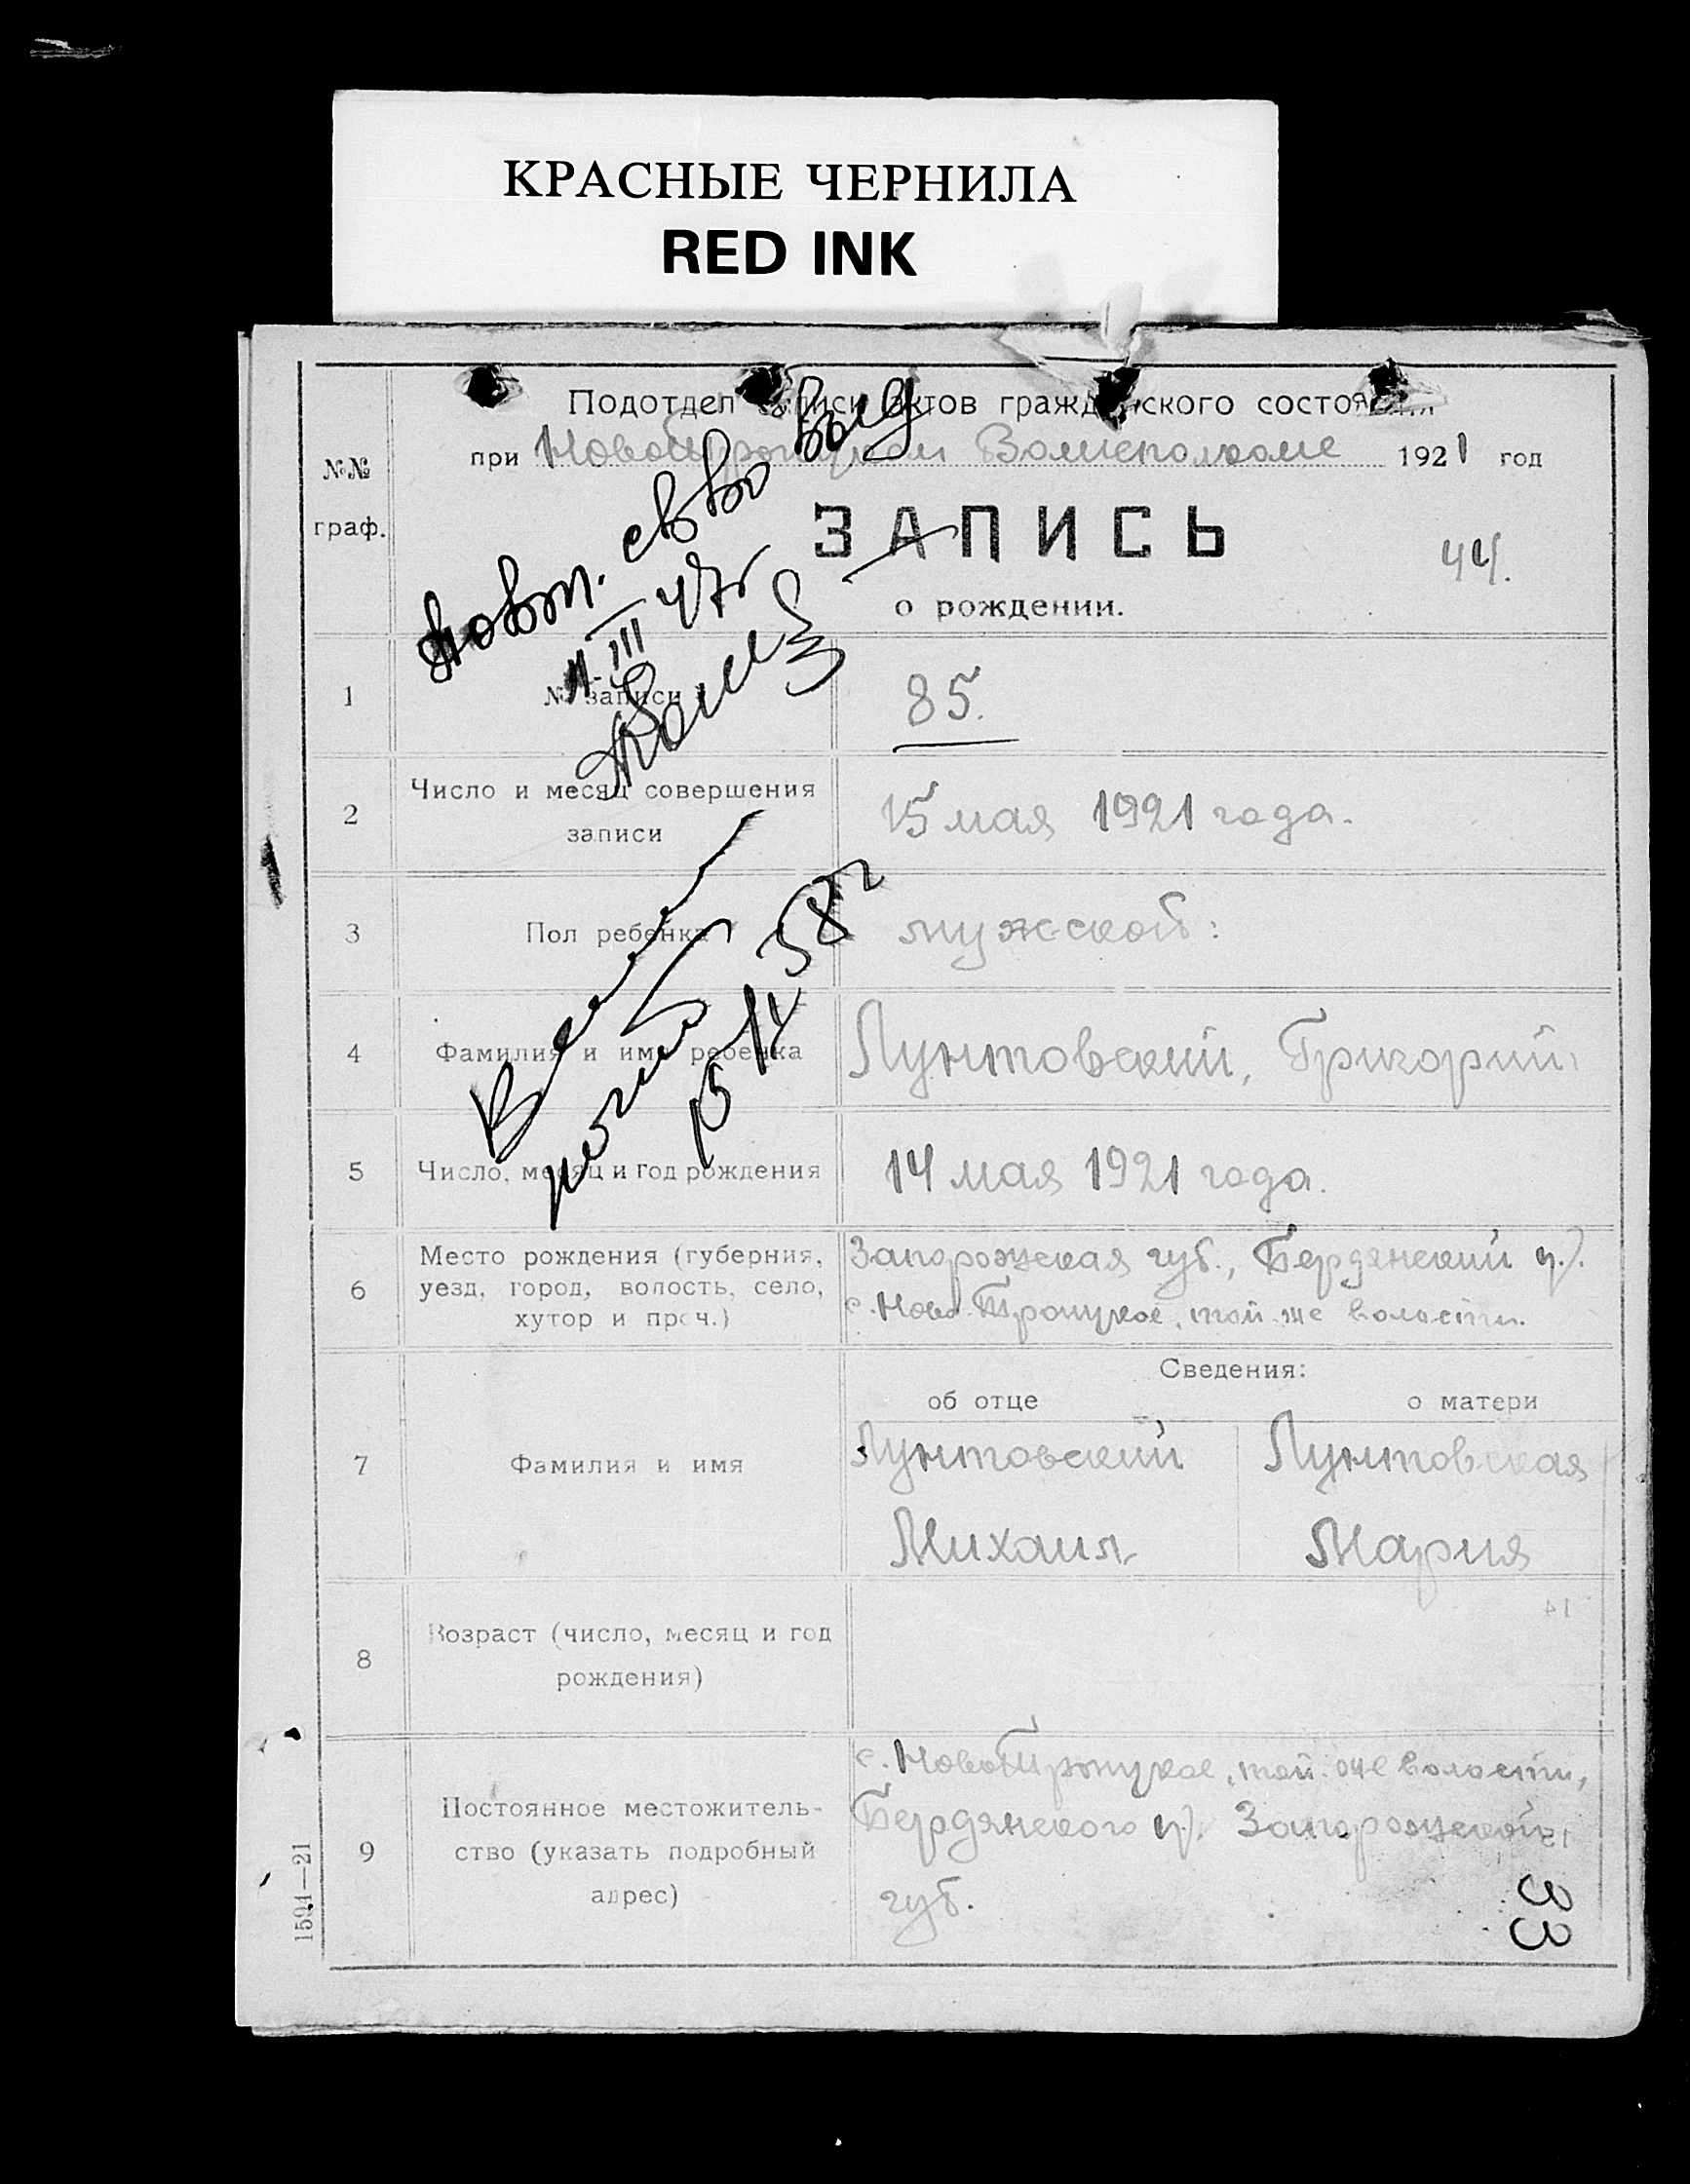 КРАСНЫЕ ЧЕРНИЛА
RED INK
Подотдел записи актов гражданского состояния
при НовоТроицком Волисполкоме 1921 год
№№
граф.
ЗАПИСЬ
о рождении.
44.
повт. св-во выд
11.III 47г
1 № записи 85.
2 Число и месяц совершения
записи
15 мая 1921 года.
3 Пол ребенка мужской:
4 Фамилия и имя ребенка Лунтовский, Григорий
5 Число, месяц и год рождения 14 мая 1921 года.
6 Место рождения (губерния,
уезд, город, волость, село,
хутор и проч.)
Запорожская губ., Бердянский у.
с. Ново Троицкое, той-же волости.
Сведения:
об отце о матери
7 Фамилия и имя
Лунтовский Лунтовская
Михаил Мария
8 Возраст (число, месяц и год
рождения)
14
9 Постоянное местожитель-
ство (указать подробный
адрес)
с. НовоТроицкое, той-же волости,
Бердянского у. Запорожской
губ.
33
1594—21